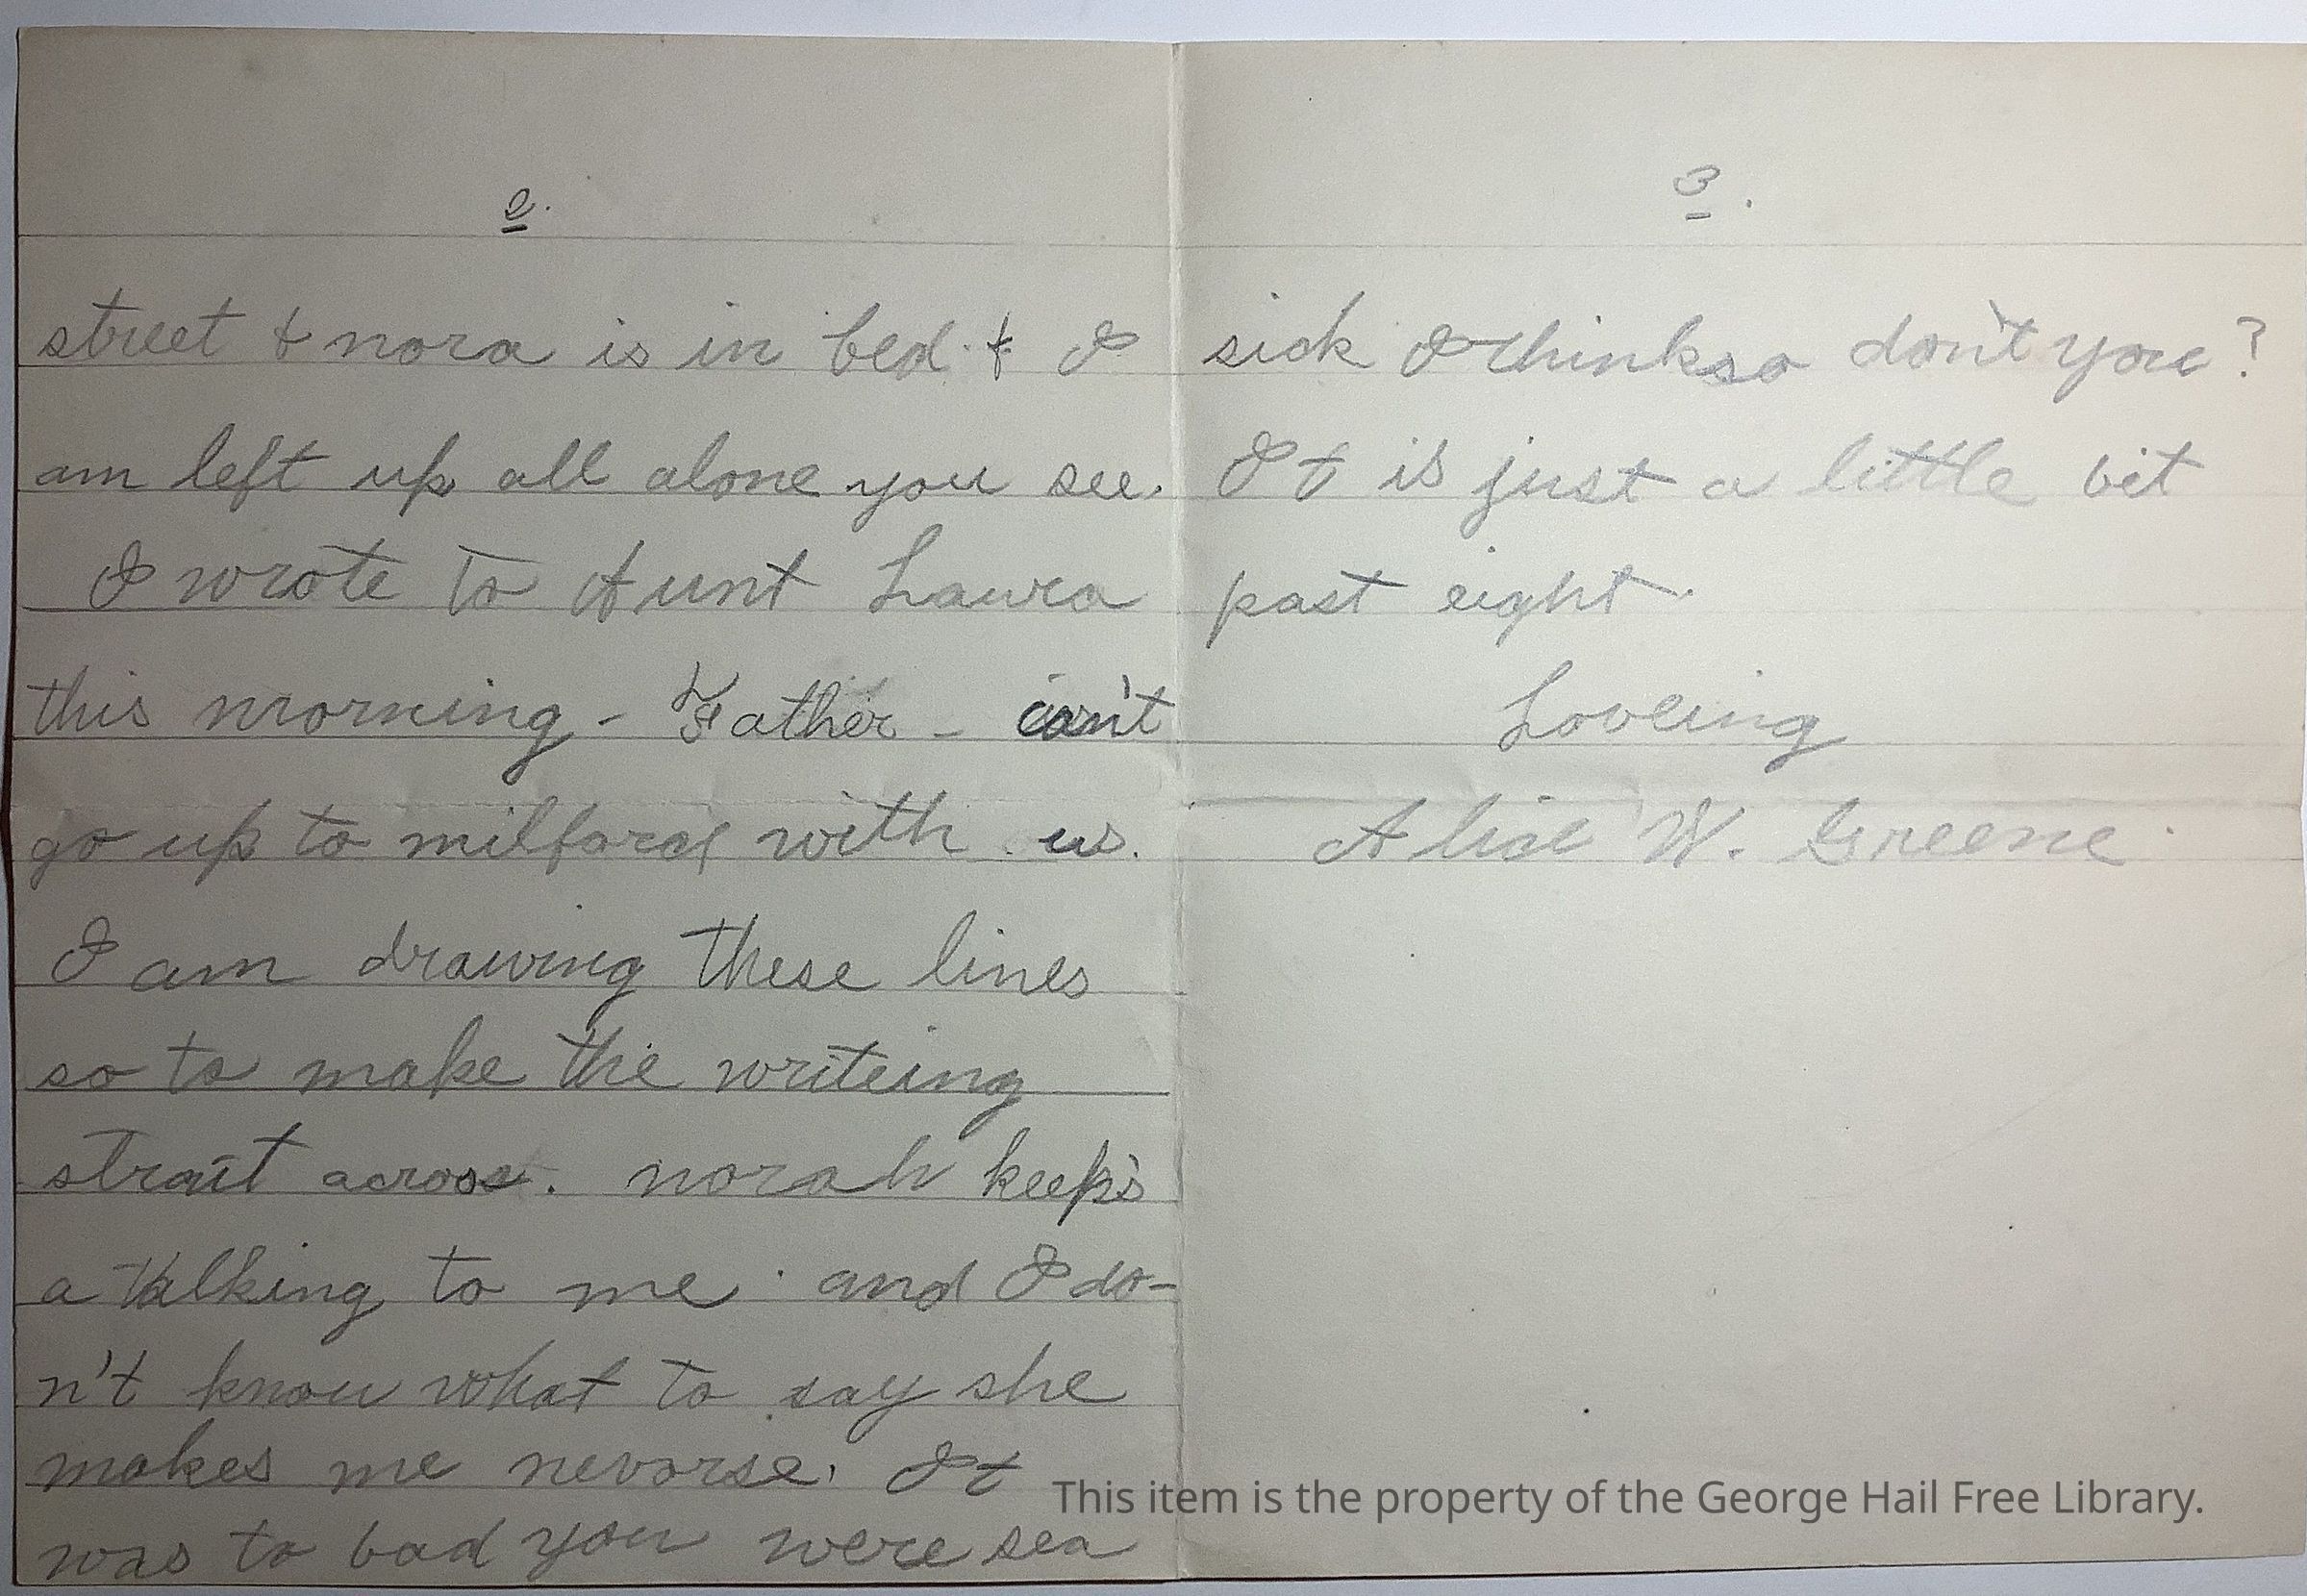 2.
street & nora is in bed & I
am left up all alone you see.
I wrote to Aunt Laura
this morning - Father - can't
go up to milford with us.
I am drawing these lines
so to make the writeing
strait across. norah keep's
a talking to me. and I do-
n't know what to say she
makes me nevorse. It
was to bad you were sea
3.
sick I think so don't you?
It is just a little bit
past eight.
Loveing
Alice W. Greene.
This item is the property of the George Hail Free Library.